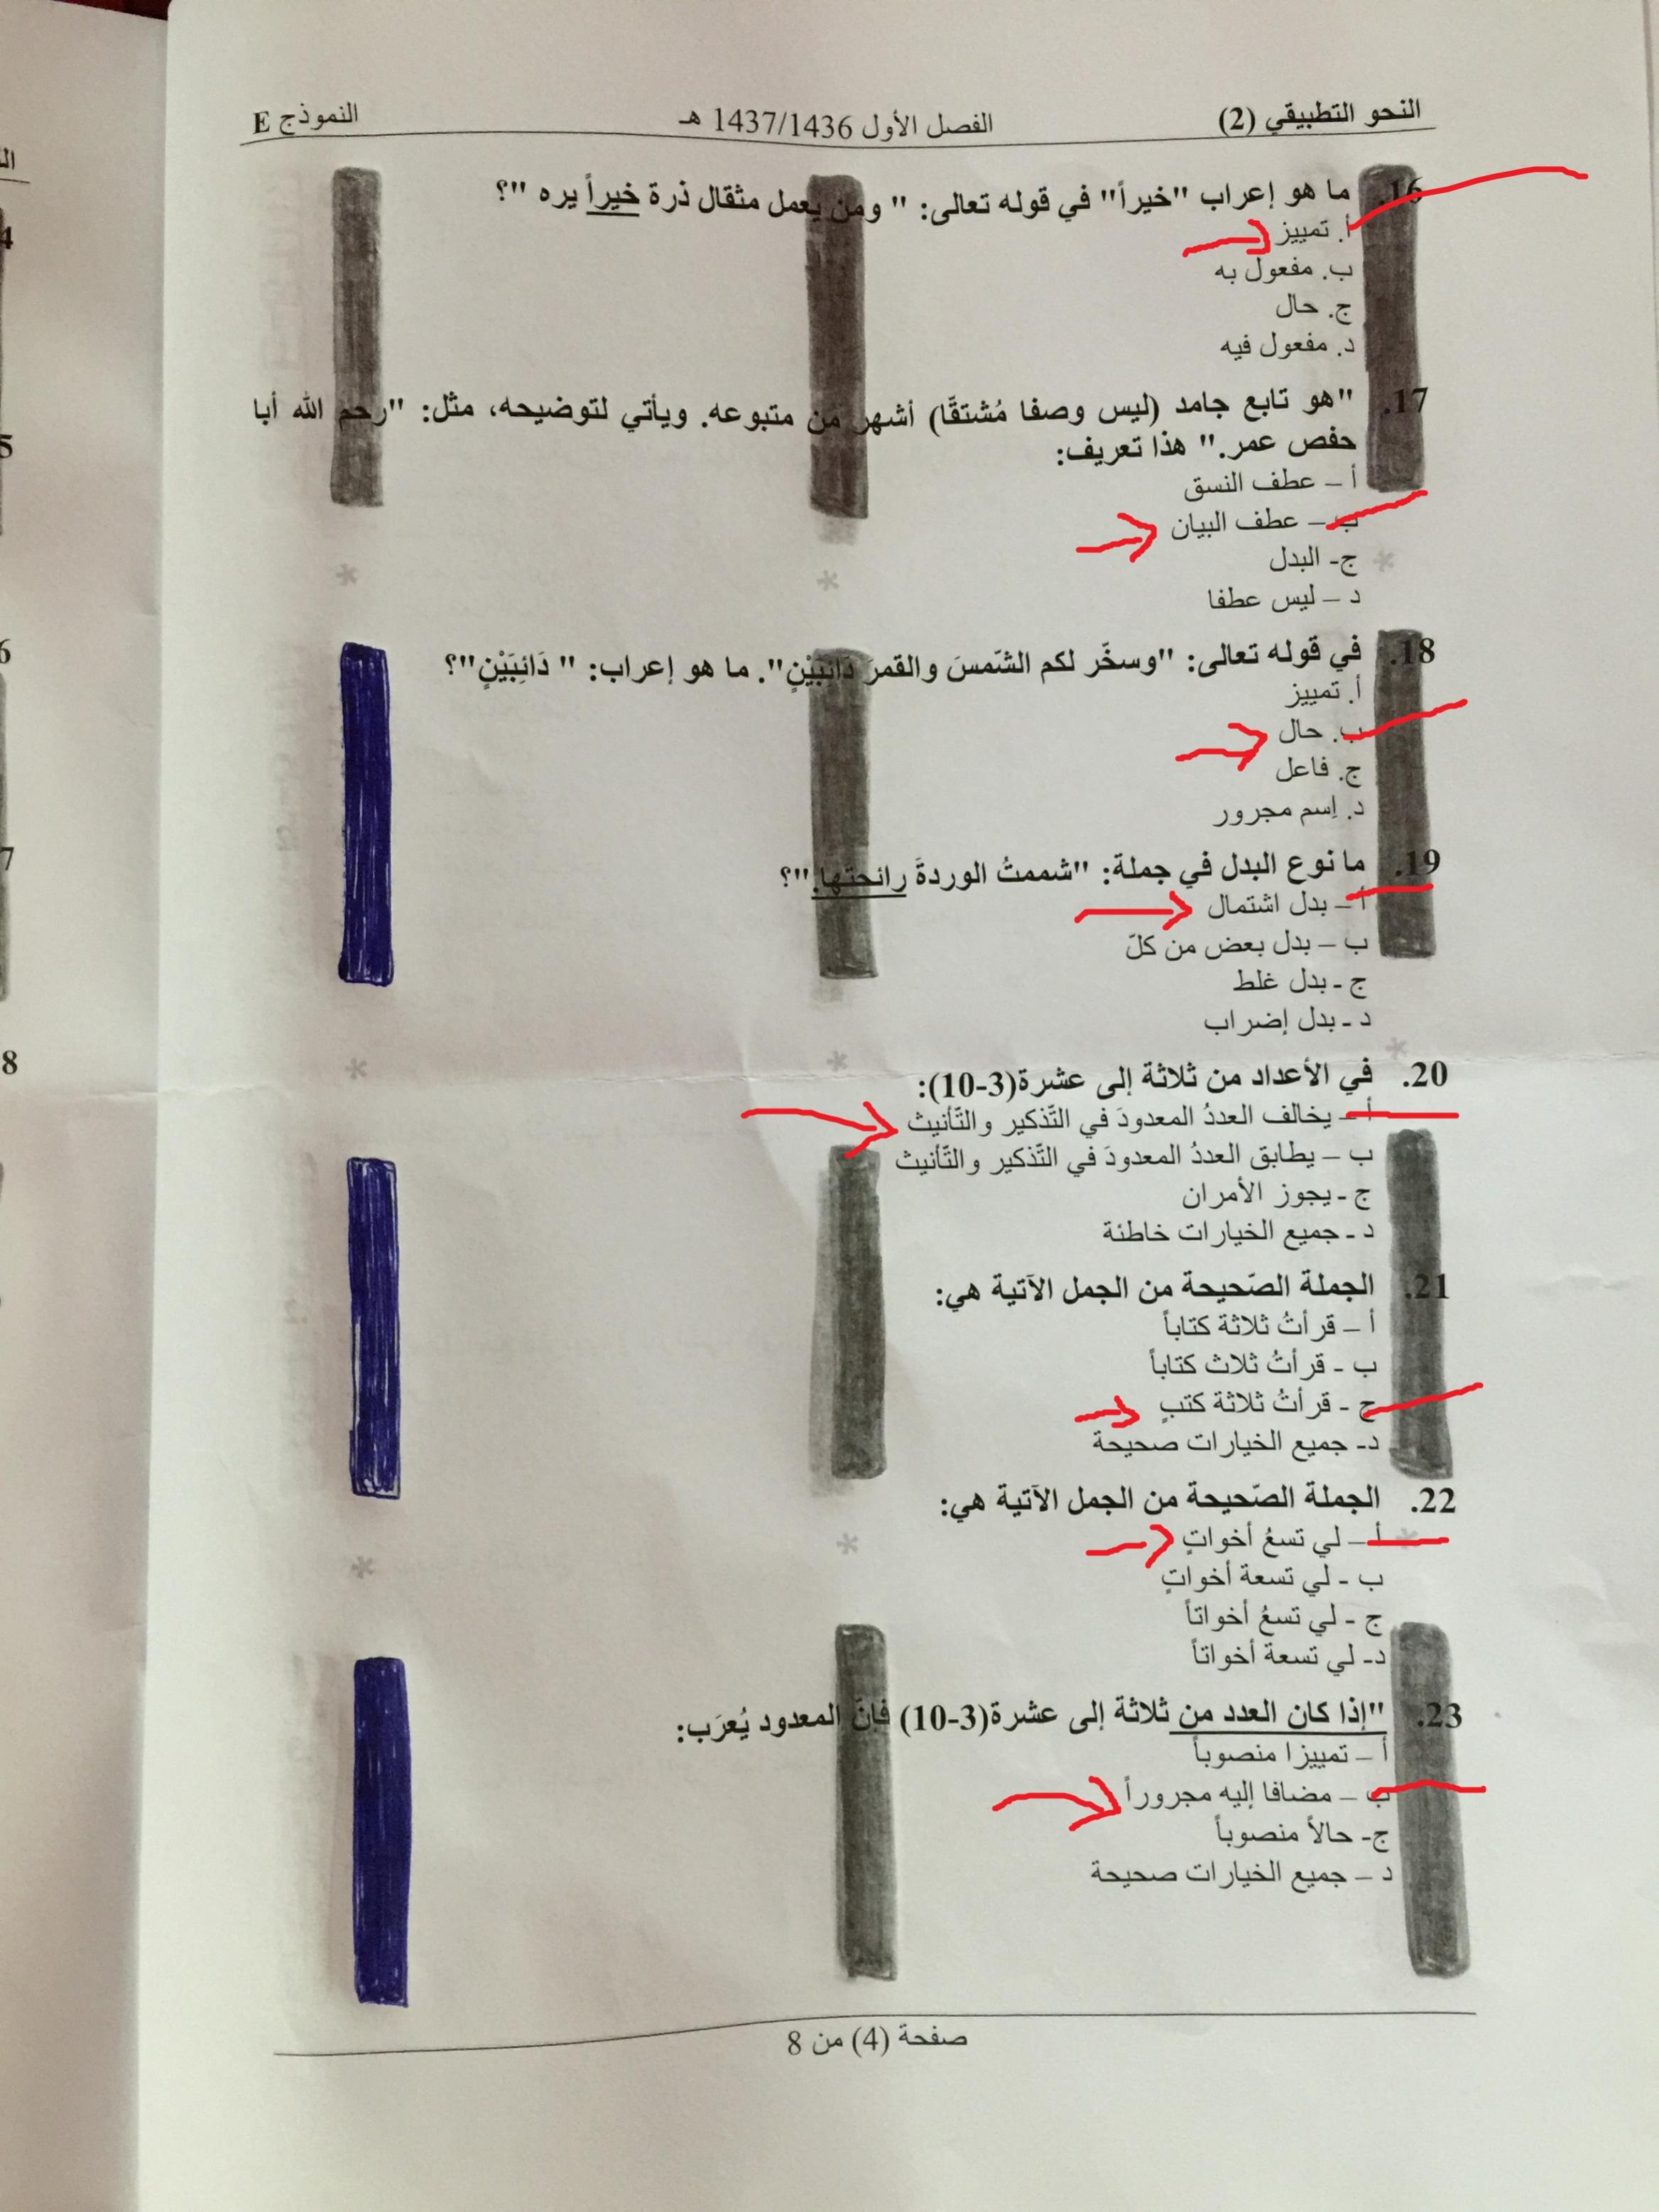 النحو التطبيقي (2) الفصل الأول 1437/1436 هـ النموذج E
16. ما هو إعراب "خيراً" في قوله تعالى: " ومن يعمل مثقال ذرة خيراً يره "؟
أ. تمييز
ب. مفعول به
ج. حال
د. مفعول فيه
17. "هو تابع جامد (ليس وصفا مُشتقًا) أشهر من متبوعه. ويأتي لتوضيحه، مثل: "رحم الله أبا
حفص عمر." هذا تعريف:
أ – عطف النسق
ب – عطف البيان
ج- البدل
د – ليس عطفا
18. في قوله تعالى: "وسخّر لكم الشّمسَ والقمرَ دَائِبَيْنِ". ما هو إعراب: " دَائِبَيْنِ"؟
أ. تمييز
ب. حال
ج. فاعل
د. إسم مجرور
19. ما نوع البدل في جملة: "شممتُ الوردةَ رائحتها."؟
أ – بدل اشتمال
ب – بدل بعض من كلّ
ج - بدل غلط
د - بدل إضراب
20. في الأعداد من ثلاثة إلى عشرة(3-10):
أ – يخالف العددُ المعدودَ في التّذكير والتّأنيث
ب – يطابق العددُ المعدودَ في التّذكير والتّأنيث
ج - يجوز الأمران
د - جميع الخيارات خاطئة
21. الجملة الصّحيحة من الجمل الآتية هي:
أ – قرأتُ ثلاثة كتاباً
ب - قرأتُ ثلاث كتاباً
ج - قرأتُ ثلاثة كتبٍ
د- جميع الخيارات صحيحة
22. الجملة الصّحيحة من الجمل الآتية هي:
أ – لي تسعُ أخواتٍ
ب - لي تسعة أخواتٍ
ج - لي تسعُ أخواتاً
د- لي تسعة أخواتاً
23. "إذا كان العدد من ثلاثة إلى عشرة(3-10) فإنّ المعدود يُعرَب:
أ – تمييزا منصوباً
ب – مضافا إليه مجروراً
ج- حالاً منصوباً
د – جميع الخيارات صحيحة
صفحة (4) من 8
4
5
6
7
8